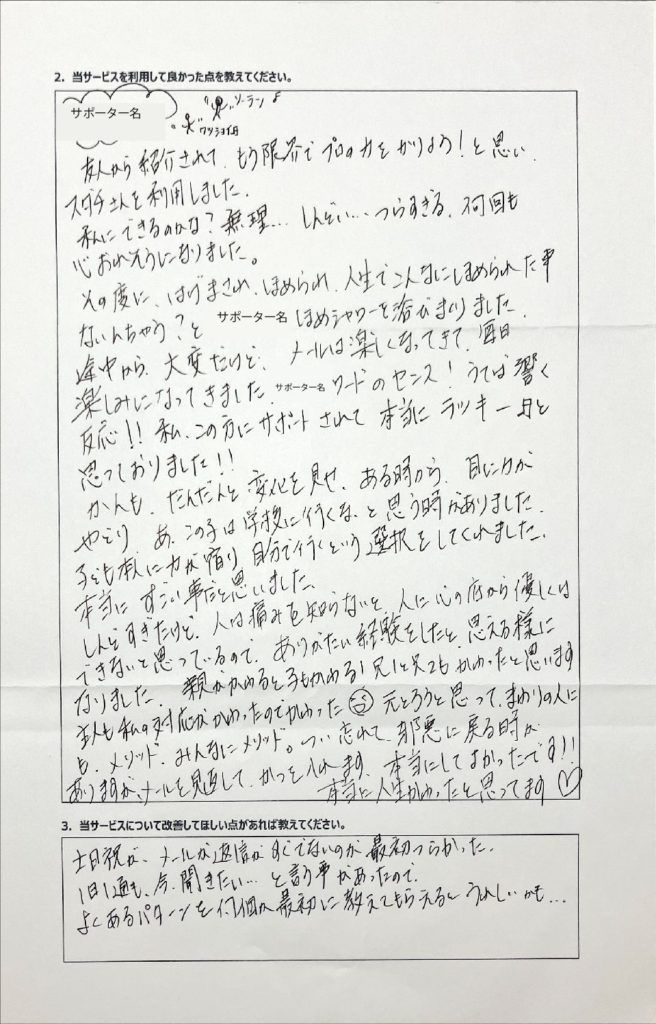 2. 当サービスを利用して良かった点を教えてください。
サポーター名
ソーラン
ワッショイ
友人から紹介されて、もう限界でプロの力をかりよう!と思い、
スダチさんを利用しました。
私にできるのかな?無理… しんどい… つらすぎる、何回も
心おれそうになりました。
その度に、はげまされ、ほめられ、人生でこんなにほめられた事
ないんちゃう?と サポーター名 ほめシャワーを浴びまくりました。
途中から、大変だけど、メールは楽しくなってきて、毎日
楽しみになってきました。サポーター名 ワードのセンス!うてば響く
反応!! 私、この方にサポートされて 本当に ラッキー 母と
思っておりました!!
かんも、だんだんと 変化を見せ、ある時から、目に力が
やどり、あ、この子は学校に行くな、と思う時がありました。
子ども本人に力が宿り 自分で行くという選択をしてくれました。
本当に すごい事だと思いました。
しんどすぎたけど、人は痛みを知らないと、人に心の底から優しくは
できないと思っているので、ありがたい経験をしたと 思える様に
なりました。親がかわると子もかわる! 兄1と兄2も かわったと思います
主人も私の対応がかわったのでかわった 元とろうと思って、まわりの人に
も、メリット、みんなにメリット。つい忘れて、邪悪に戻る時が
ありますが、メールを見返して、かつを入れます、本当にしてよかったです!!
本当に人生かわったと思ってます♡
3. 当サービスについて改善してほしい点があれば教えてください。
土日祝が、メールが返信がすぐでないのが 最初つらかった。
1日1通も、今、聞きたい… と言う事があったので、
よくあるパターンを何個か最初に教えてもらえると うれしいかも…